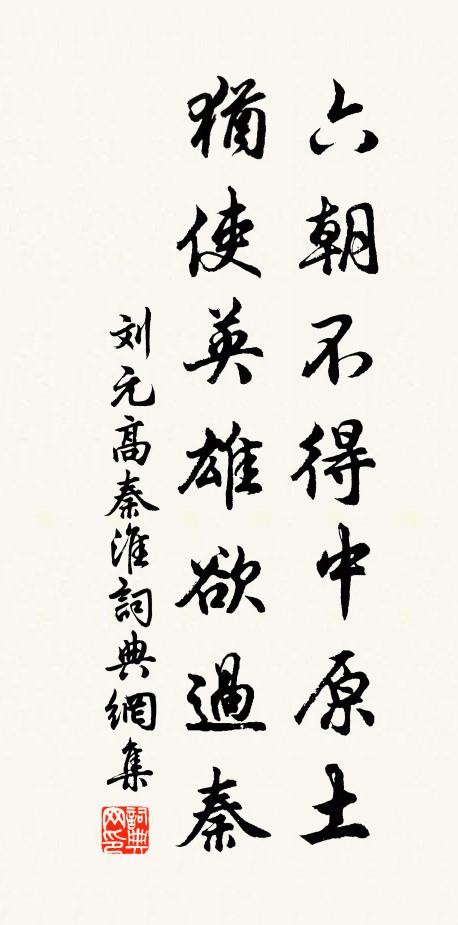 六朝不得中原土
猶使英雄欲過秦
刘元高秦淮詞典網集
詞典网印